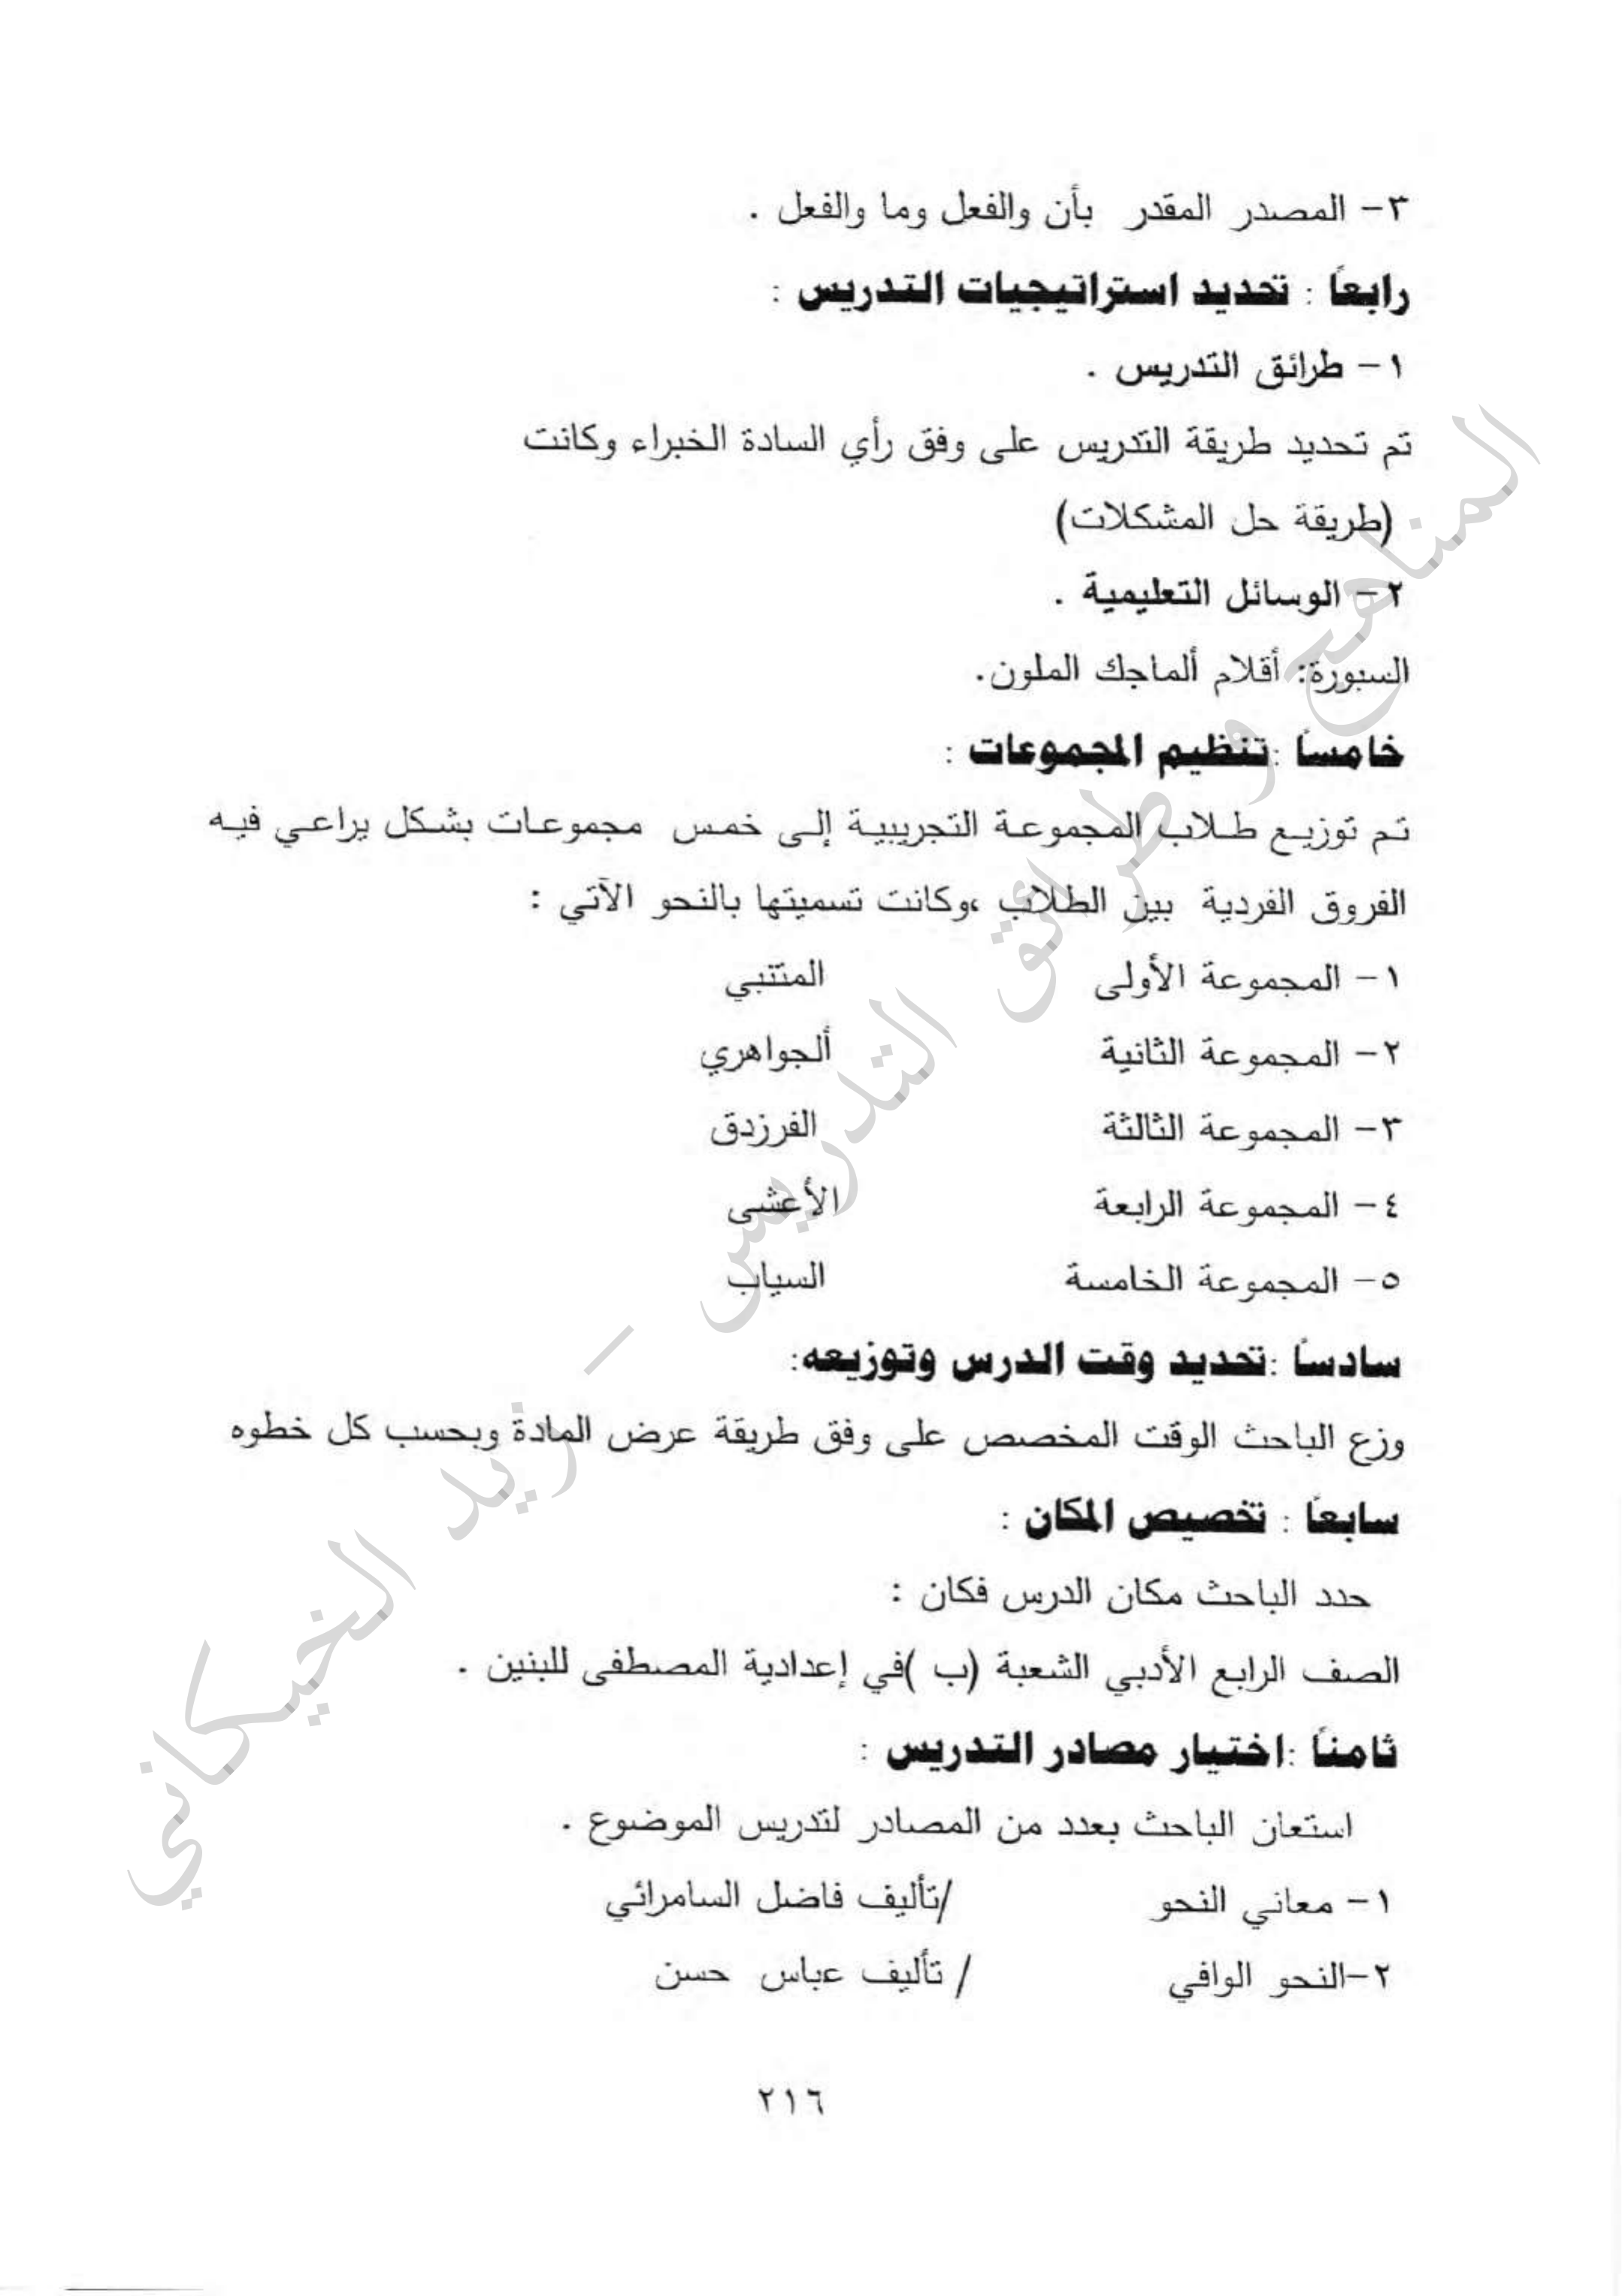 ٣- المصدر المقدر بأن والفعل وما والفعل .
رابعاً : تحديد استراتيجيات التدريس :
١- طرائق التدريس .
تم تحديد طريقة التدريس على وفق رأي السادة الخبراء وكانت
(طريقة حل المشكلات)
٢- الوسائل التعليمية .
السبورة: أقلام ألماجك الملون.
خامساً :تنظيم المجموعات :
تم توزيع طلاب المجموعة التجريبية إلى خمس مجموعات بشكل يراعي فيه
الفروق الفردية بين الطلاب ،وكانت تسميتها بالنحو الآتي :
١- المجموعة الأولى المتنبي
٢- المجموعة الثانية ألجواهري
٣- المجموعة الثالثة الفرزدق
٤- المجموعة الرابعة الأعشى
٥- المجموعة الخامسة السياب
سادساً :تحديد وقت الدرس وتوزيعه:
وزع الباحث الوقت المخصص على وفق طريقة عرض المادة وبحسب كل خطوه
سابعاً : تخصيص المكان :
حدد الباحث مكان الدرس فكان :
الصف الرابع الأدبي الشعبة (ب )في إعدادية المصطفى للبنين .
ثامناً :اختيار مصادر التدريس :
استعان الباحث بعدد من المصادر لتدريس الموضوع .
١- معاني النحو /تأليف فاضل السامرائي
٢-النحو الوافي / تأليف عباس حسن
٢١٦
المناهج و طرائق التدريس – زيد الخيكاني